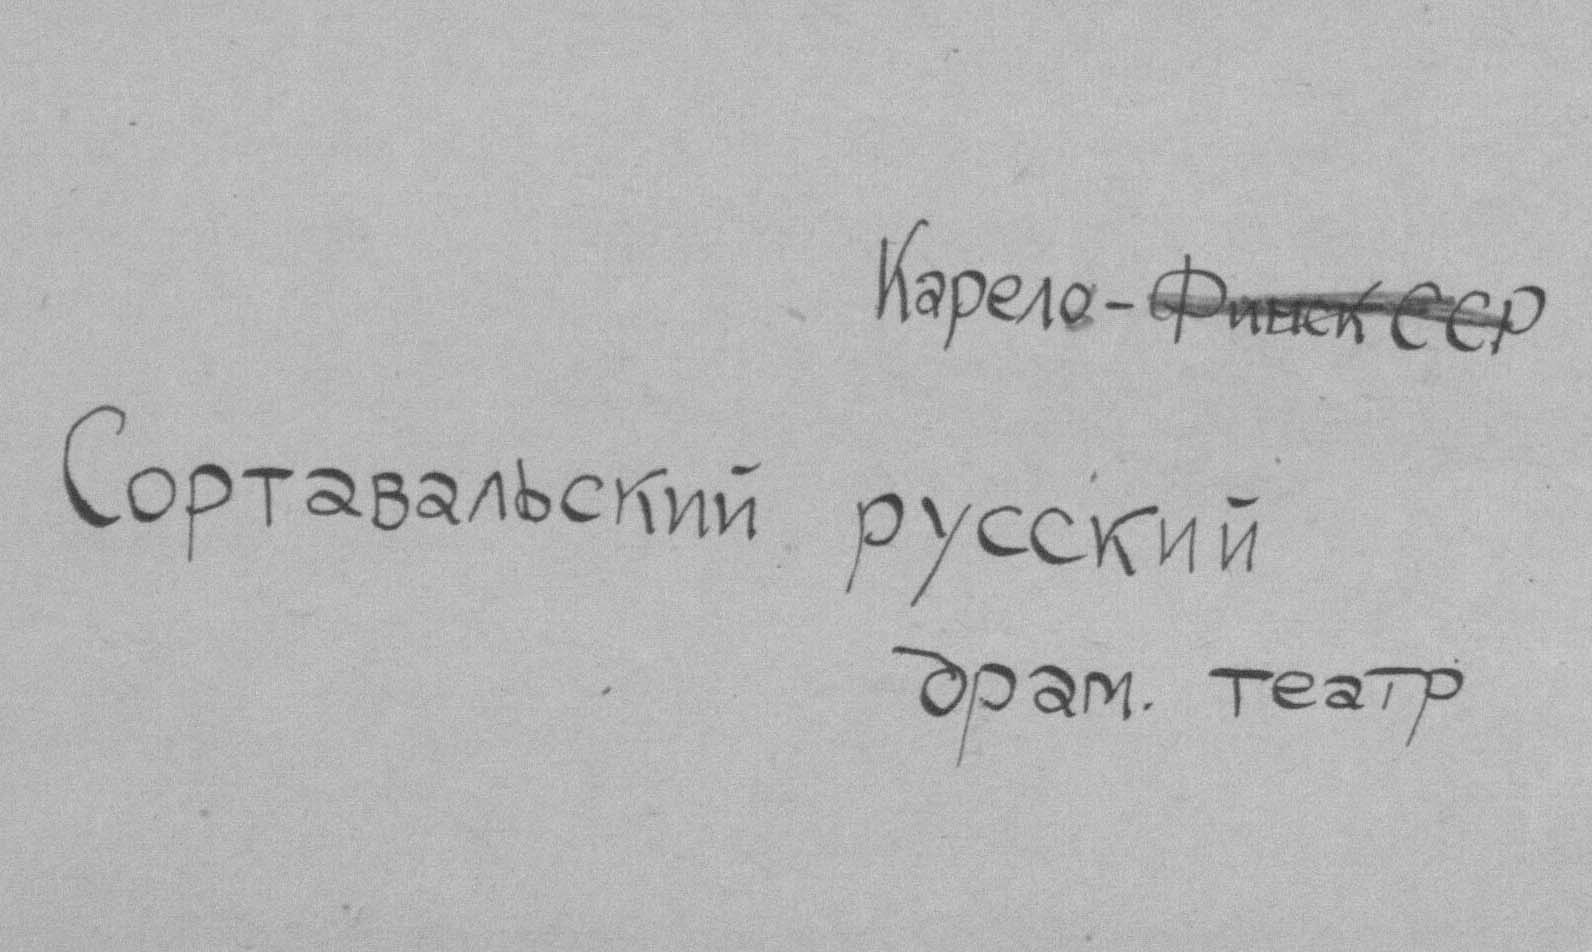 Карело-Финск ССР
Сортавальский русский
драм. театр